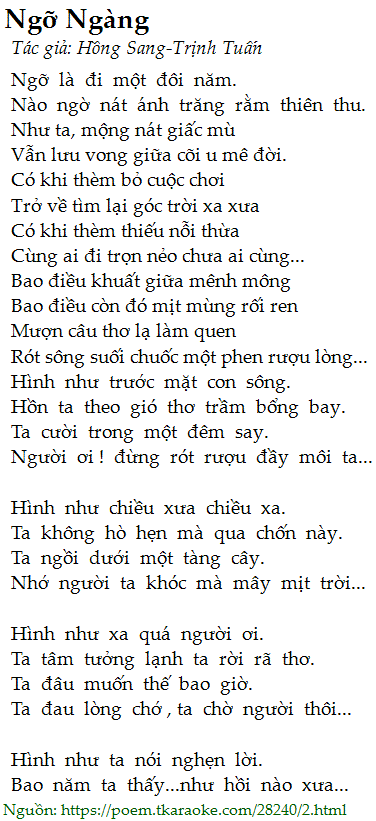 Ngỡ Ngàng
Tác giả: Hồng Sang-Trịnh Tuấn
Ngỡ là đi một đôi năm.
Nào ngờ nát ánh trăng rằm thiên thu.
Như ta, mộng nát giấc mù
Vẫn lưu vong giữa cõi u mê đời.
Có khi thèm bỏ cuộc chơi
Trở về tìm lại góc trời xa xưa
Có khi thèm thiếu nỗi thừa
Cùng ai đi trọn nẻo chưa ai cùng...
Bao điều khuất giữa mênh mông
Bao điều còn đó mịt mùng rối ren
Mượn câu thơ lạ làm quen
Rót sông suối chuốc một phen rượu lòng...
Hình như trước mặt con sông.
Hồn ta theo gió thơ trầm bổng bay.
Ta cười trong một đêm say.
Người ơi ! đừng rót rượu đầy môi ta...
Hình như chiều xưa chiều xa.
Ta không hò hẹn mà qua chốn này.
Ta ngồi dưới một tàng cây.
Nhớ người ta khóc mà mây mịt trời...
Hình như xa quá người ơi.
Ta tâm tưởng lạnh ta rời rã thơ.
Ta đâu muốn thế bao giờ.
Ta đau lòng chớ , ta chờ người thôi...
Hình như ta nói nghẹn lời.
Bao năm ta thấy...như hồi nào xưa...
Nguồn: https://poem.tkaraoke.com/28240/2.html